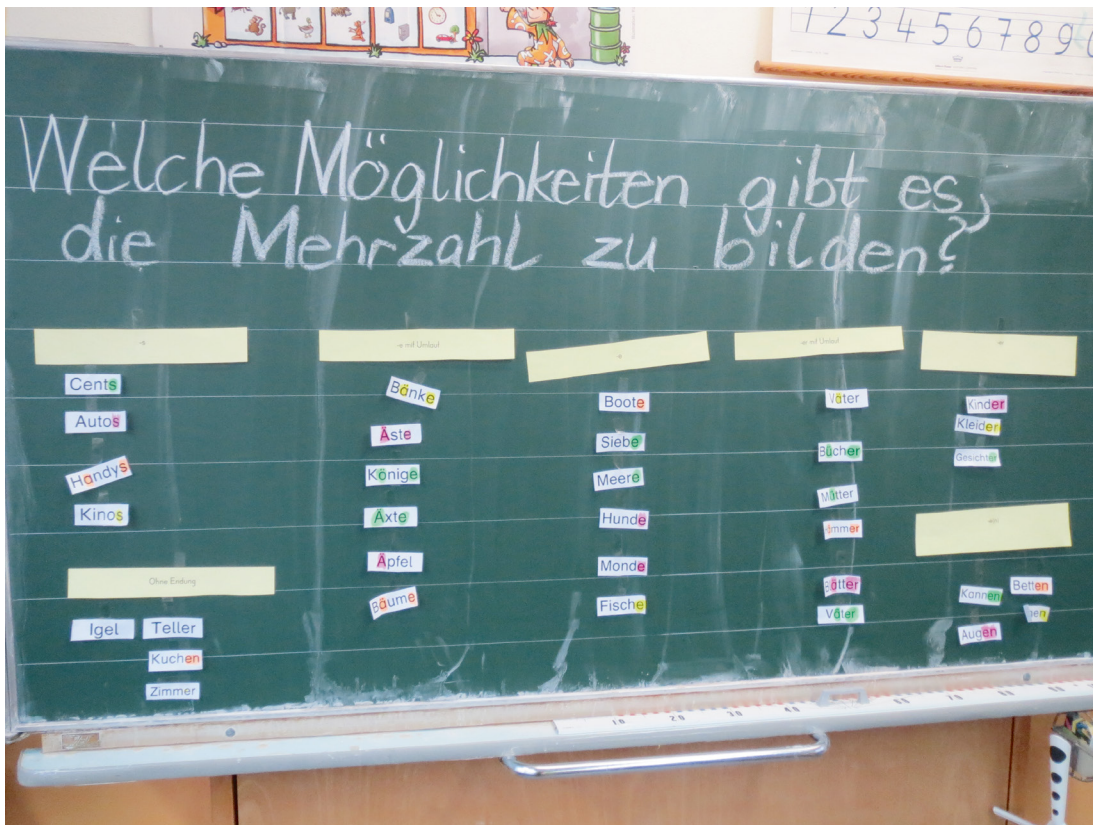 1 2 3 4 5 6 7 8 9
Welche Möglichkeiten gibt es,
die Mehrzahl zu bilden?
-s
Cents
Autos
Handys
Kinos
Ohne Endung
Igel Teller
Kuchen
Zimmer
-e mit Umlaut
Bänke
Äste
Könige
Äxte
Äpfel
Bäume
-e
Boote
Siebe
Meere
Hunde
Monde
Fische
-er mit Umlaut
Väter
Bücher
Mütter
Väter
-er
Kinder
Kleider
Gesichter
Kannen Betten
Augen
10 20 30 40 50 60 70 80 90